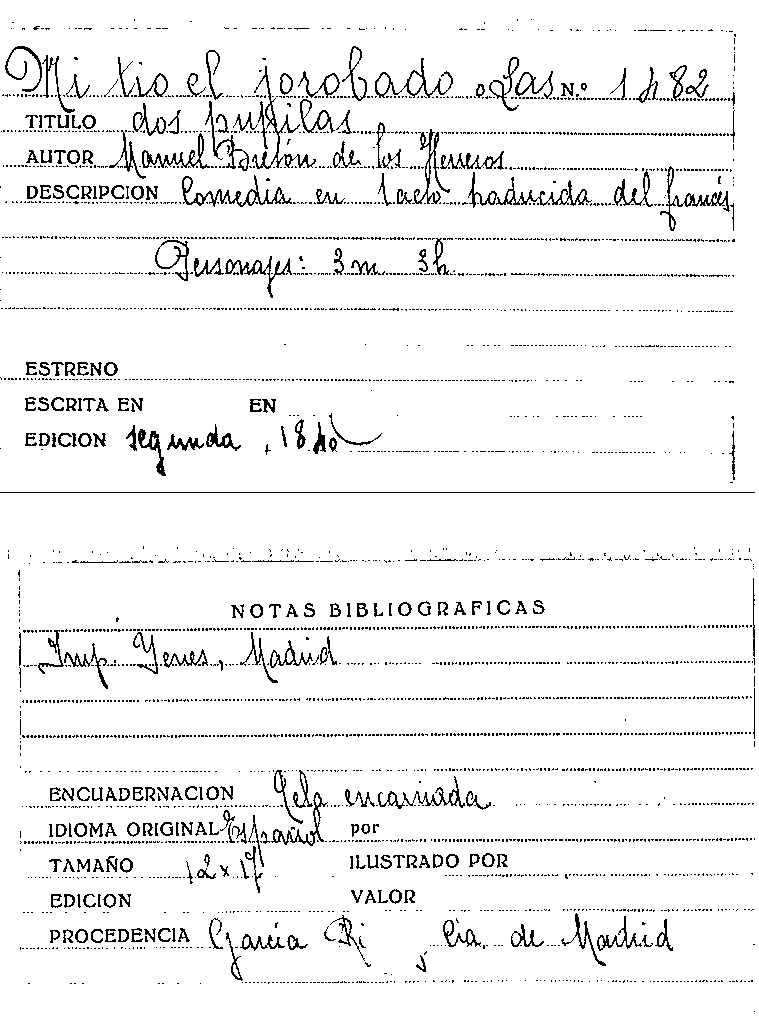 Mi tio el jorobado o Las N.º 1482
TITULO dos pupilas
AUTOR Manuel Bretón de los Herreros
DESCRIPCION Comedia en 1 acto traducida del francés
Personajes: 3m 3h
ESTRENO
ESCRITA EN EN
EDICION segunda, 1840
NOTAS BIBLIOGRAFICAS
Imp. Yenes, Madrid
ENCUADERNACION Tela encarnada
IDIOMA ORIGINAL Español por
TAMAÑO 12 x 17 ILUSTRADO POR
EDICION VALOR
PROCEDENCIA García Ri, Cia. de Madrid